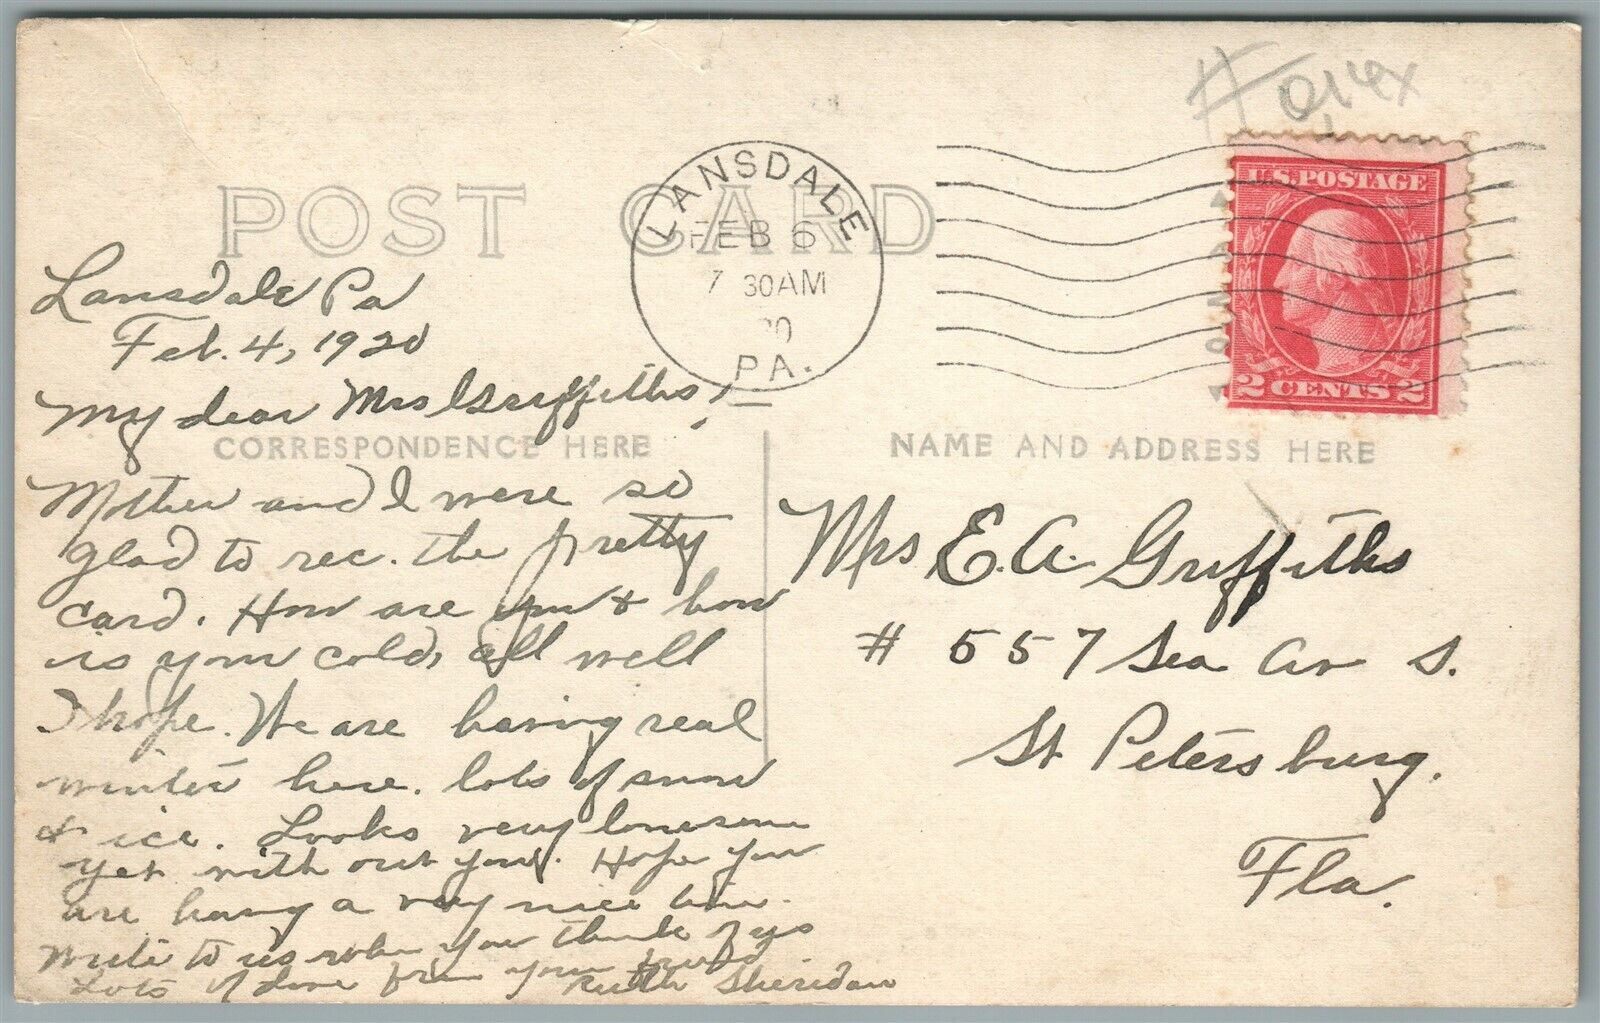 POST CARD
LANSDALE
FEB 6
7 30AM
20
PA.
U.S. POSTAGE
2 CENTS 2
Lansdale Pa
Feb. 4, 1920
My dear Mrs Griffiths!
CORRESPONDENCE HERE
Mother and I were so
glad to rec. the pretty
card. How are you & how
is your cold, all well
I hope. We are having real
winter here. lots of snow
& ice. Looks very lonesome
yet with out you. Hope you
are having a very nice time.
Write to us when you think of us
Lots of love from your friend
Ruth Sheridan
NAME AND ADDRESS HERE
Mrs E. A. Griffiths
# 557 Sea Av S.
St Petersburg.
Fla.